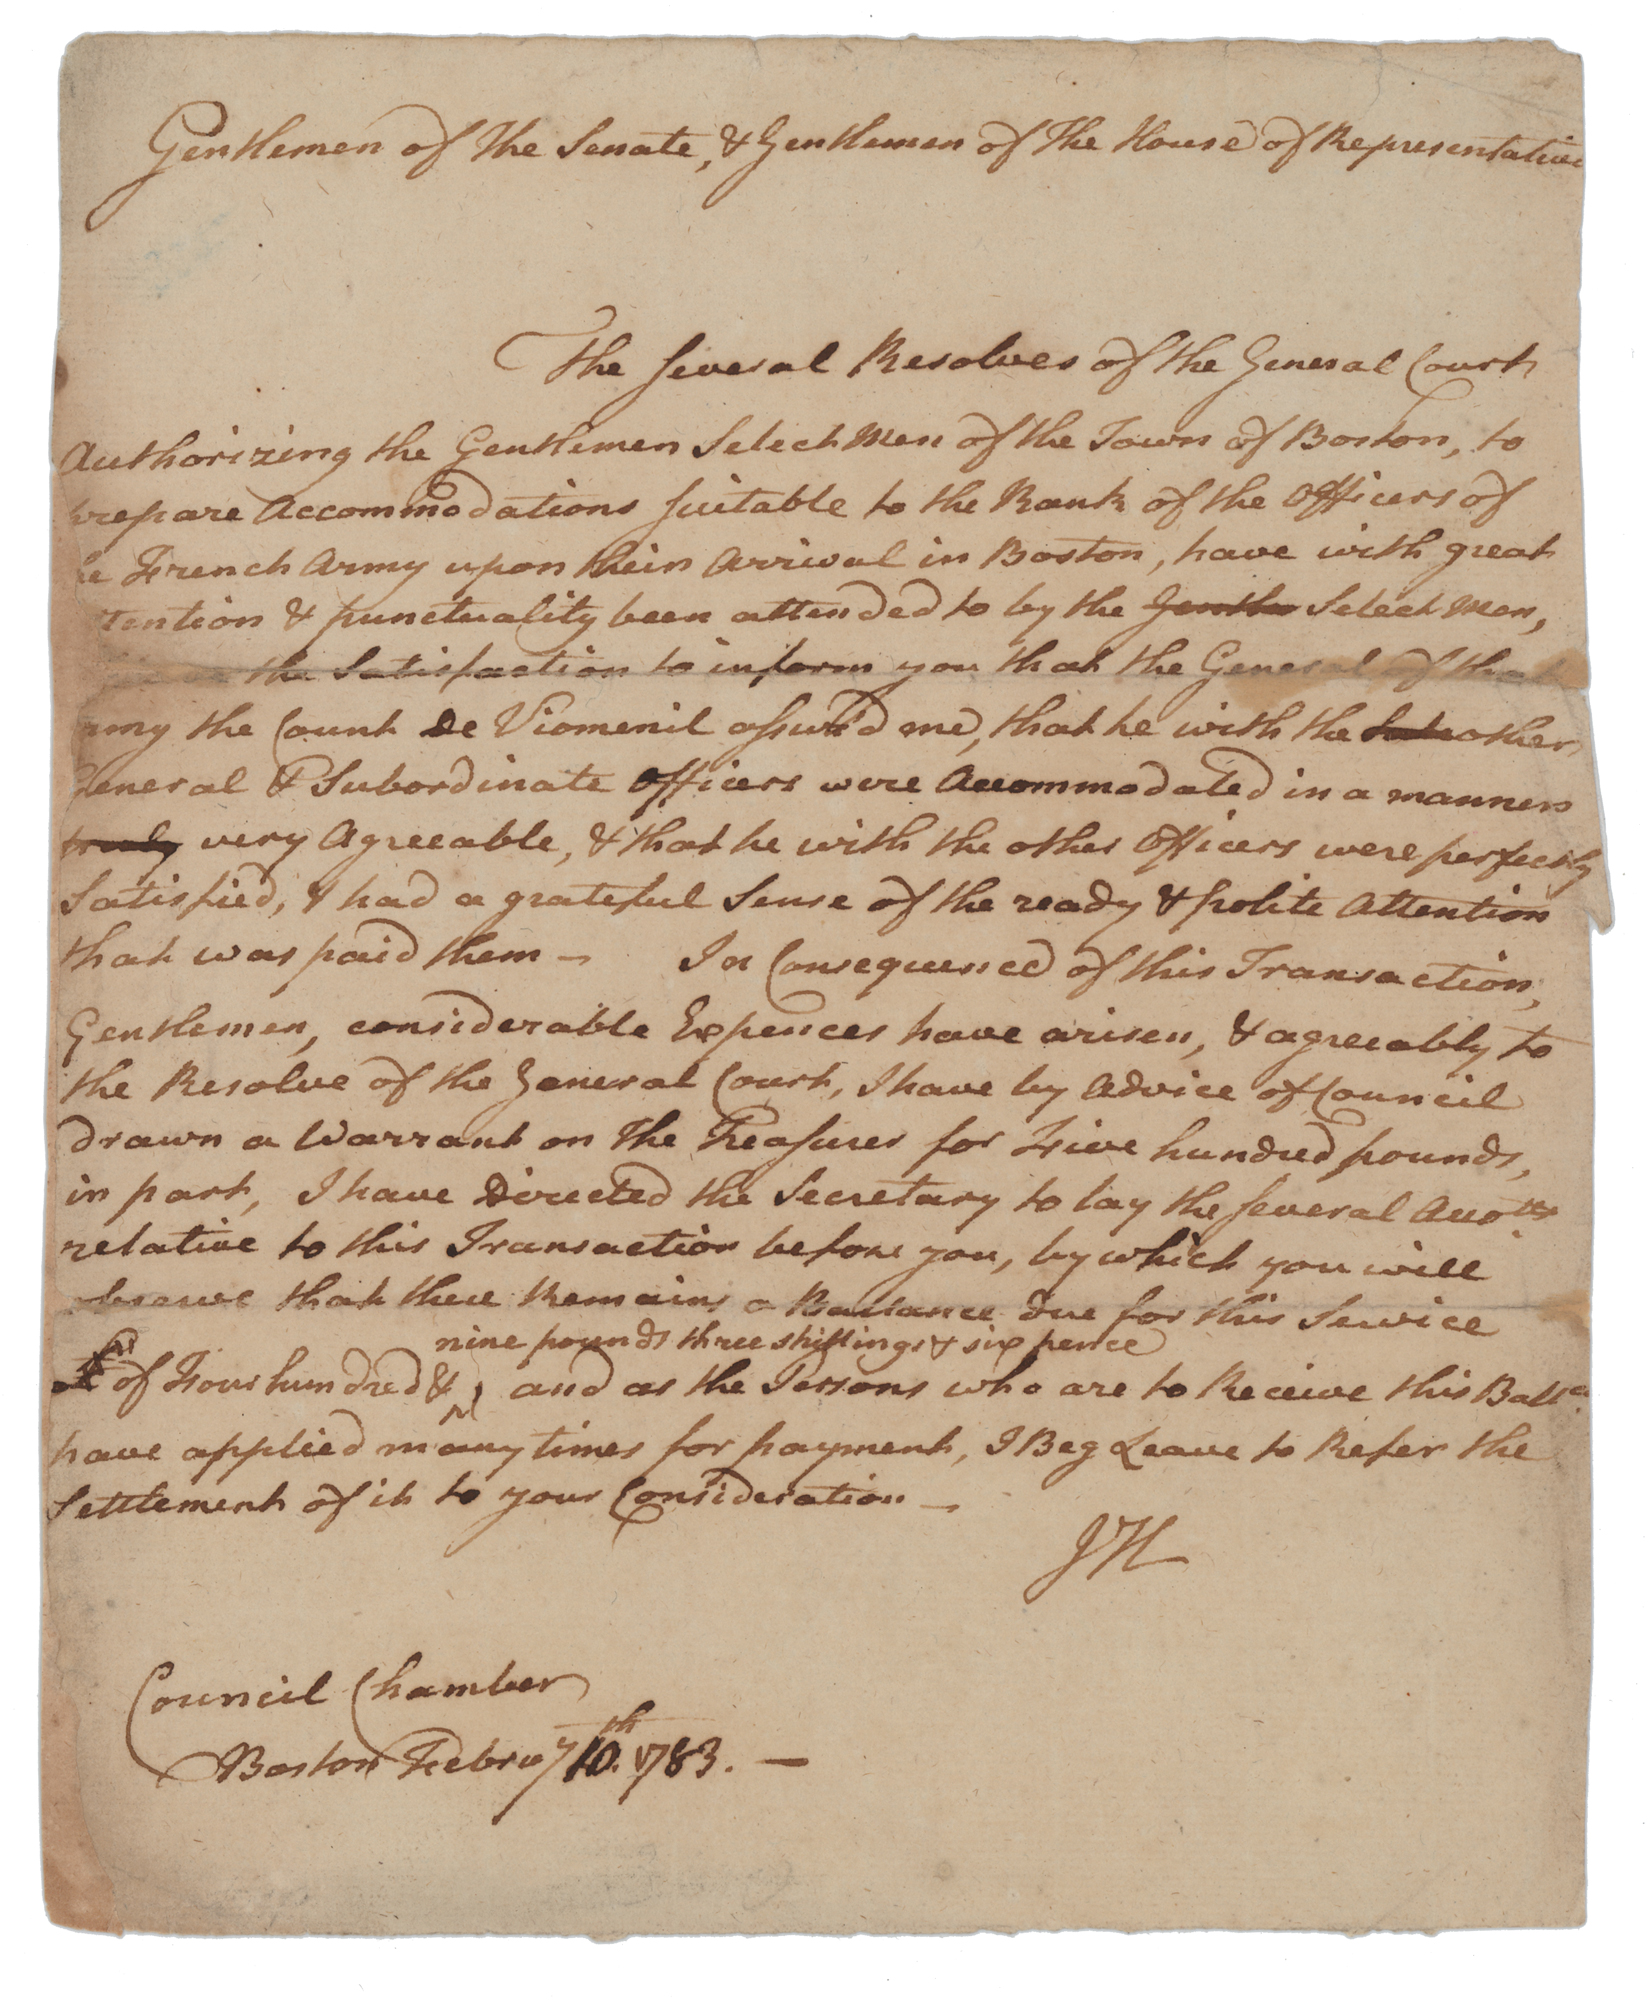 Gentlemen of the Senate, & Gentlemen of the House of Representative
The several Resolves of the General Court
Authorizing the Gentlemen Select Men of the Town of Boston, to
prepare Accommodations suitable to the Rank of the Officers of
he French Army upon their Arrival in Boston, have with great
tention & punctuality been attended to by the Gentle Select Men,
the Satisfaction to inform you that the General of that
army the Count De Viomenil assur'd me, that he with the other
General & Subordinate Officers were Accommodated in a manner
truly very Agreeable, & that he with the other Officers were perfectly
Satisfied, & had a grateful Sense of the ready & polite Attention
that was paid them — In Consequence of this Transaction,
Gentlemen, considerable Expences have arisen, & agreeably to
the Resolve of the General Court, I have by Advice of Council
drawn a Warrant on the Treasurer for Five hundred pounds,
in part, I have Directed the Secretary to lay the several Accotts
relative to this Transaction before you, by which you will
observe that there Remains a Ballance due for this Service
nine pounds three shillings & six pence
of Four hundred & and as the Persons who are to Receive this Ballce
have applied many times for payment, I Beg Leave to Refer the
Settlement of it to your Consideration —
JH
Council Chamber
Boston Febru'y 10th. 1783. —